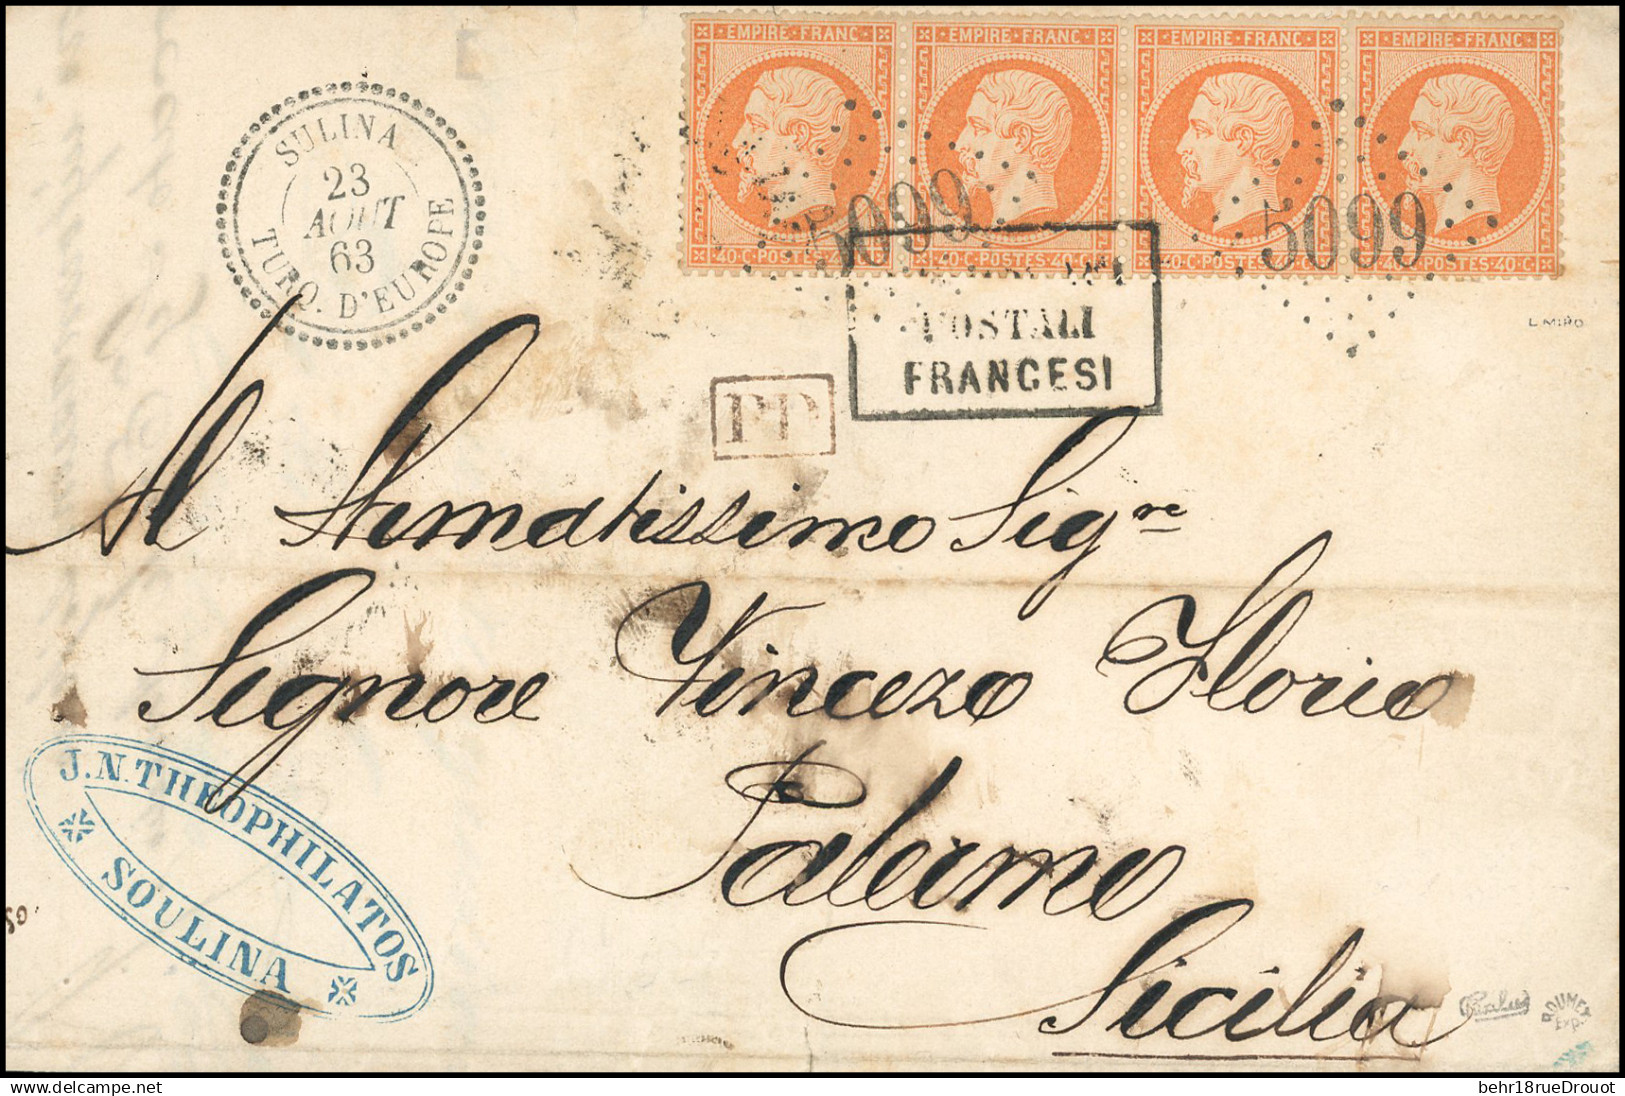 EMPIRE FRANC EMPIRE FRANC EMPIRE FRANC EMPIRE FRANC
40·C·POSTES·40·C POSTES·40·C 40·C·POSTES 40·C POSTES·40·C
5099 5099
SULINA
23
AOUT
63
TURQ. D'EUROPE
POSTALI
FRANCESI
PD
L. MIRO
Al Stimatissimo Sigre
Signore Vincezo Florio
Palermo
Sicilia
J.N. THEOPHILATOS
SOULINA
ROUMET
EXP.
behr18rueDrouot